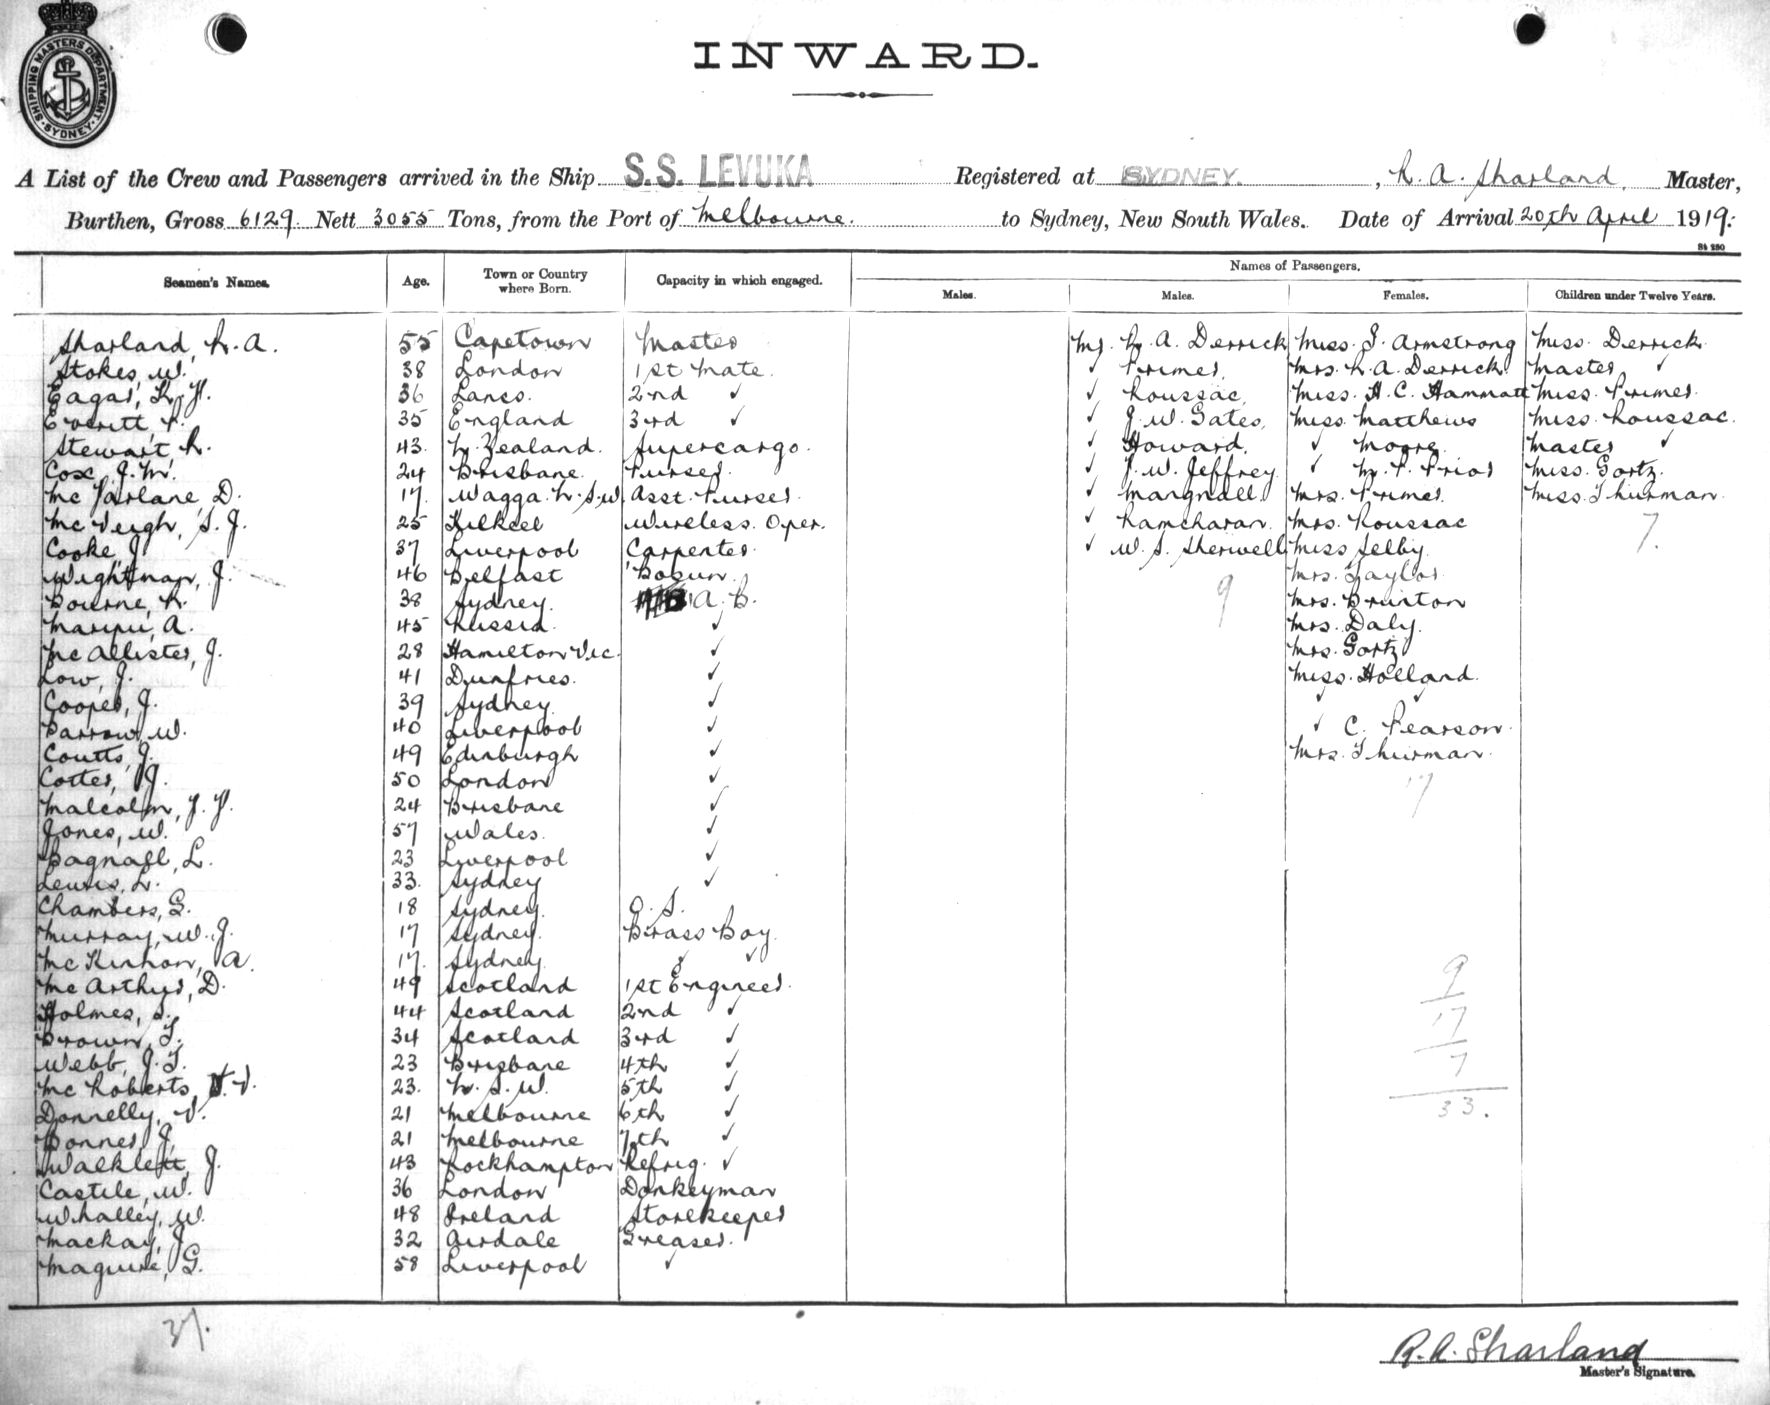 SHIPPING MASTERS DEPARTMENT. SYDNEY
INWARD.
A List of the Crew and Passengers arrived in the Ship S.S. LEVUKA Registered at SYDNEY. , R. A. Sharland, Master,
Burthen, Gross 6129 Nett 3055 Tons, from the Port of Melbourne. to Sydney, New South Wales. Date of Arrival 20th April 1919.
Names of Passengers.
Seamen's Names. Age. Town or Country where Born. Capacity in which engaged. Males. Males. Females. Children under Twelve Years.
Sharland, R. A. 55 Capetown Master Mr. R. A. Derrick Miss. I. Armstrong Miss. Derrick
Stokes, W. 38 London 1st Mate. ✓ Primes, Mrs. R. A. Derrick Master ✓
Eagar, R. H. 36 Lancs. 2nd ✓ ✓ Roussac, Miss. H. C. Hammatt Miss. Primes.
Everitt P. 35 England 3rd ✓ ✓ J. W. Gates, Miss Matthews Miss. Roussac.
Stewart, R. 43. N. Zealand. Supercargo. ✓ Howard. ✓ Moore Master ✓
Cox, J. M. 24 Brisbane. Purser. ✓ J. W. Jeffrey ✓ M. P. Prior Miss. Gortz.
Mc Farlane, D. 17. Wagga. N.S.W. Asst. Purser. ✓ Margnall Mrs. Primes. Miss. Thurman.
Mc Veigh, S. J. 25 Kilkeel Wireless. Oper. ✓ Ramcharan. Mrs. Roussac 7.
Cooke J. 37 Liverpool Carpenter ✓ W. S. Sherwell Miss Selby.
Wightman, J. 46 Belfast Bosun. 9 Mrs. Taylor.
Bourne, R. 38 Sydney. A. B. Mrs. Brunton
A. 45 Russia. ✓ Mrs. Daly.
Mc Allister, J. 28 Hamilton Vic. ✓ Mrs. Gortz
Low, J. 41 Dumfries. ✓ Miss. Holland.
Cooper, J. 39 Sydney. ✓ ✓ ✓
Barrow W. 40 Liverpool ✓ ✓ C. Pearson.
Coutts, J. 49 Edinburgh ✓ Mrs. Thurman.
Cotter, J. 50 London ✓ 17
Malcolm, J. H. 24 Brisbane ✓
Jones, W. 57 Wales. ✓
Bagnall, L. 23 Liverpool ✓
Lewis, L. 33. Sydney ✓
Chambers, G. 18 Sydney. O. S.
Murray, W. J. 17 Sydney. Brass Boy
Mc Kinnon, A. 17. Sydney ✓ ✓
Mc Arthur, D. 49 Scotland 1st Engineer.
Holmes, S. 44 Scotland 2nd ✓
Brown, T. 34 Scotland 3rd ✓
Webb, J. T. 23 Brisbane 4th ✓
Mc Roberts, V. 23. N. S. W. 5th ✓
Donnelly, V. 21 Melbourne 6th ✓
Bonner, J. 21 Melbourne 7th ✓
Walklett, J. 43 Rockhampton Refrig. ✓
Castile, W. 36 London Donkeyman
Whalley, W. 48 Ireland Storekeeper
Mackay, J. 32 Airdale Greaser.
Maguire, G. 58 Liverpool ✓
9
17
7
33.
37.
R. A. Sharland
Master's Signature.